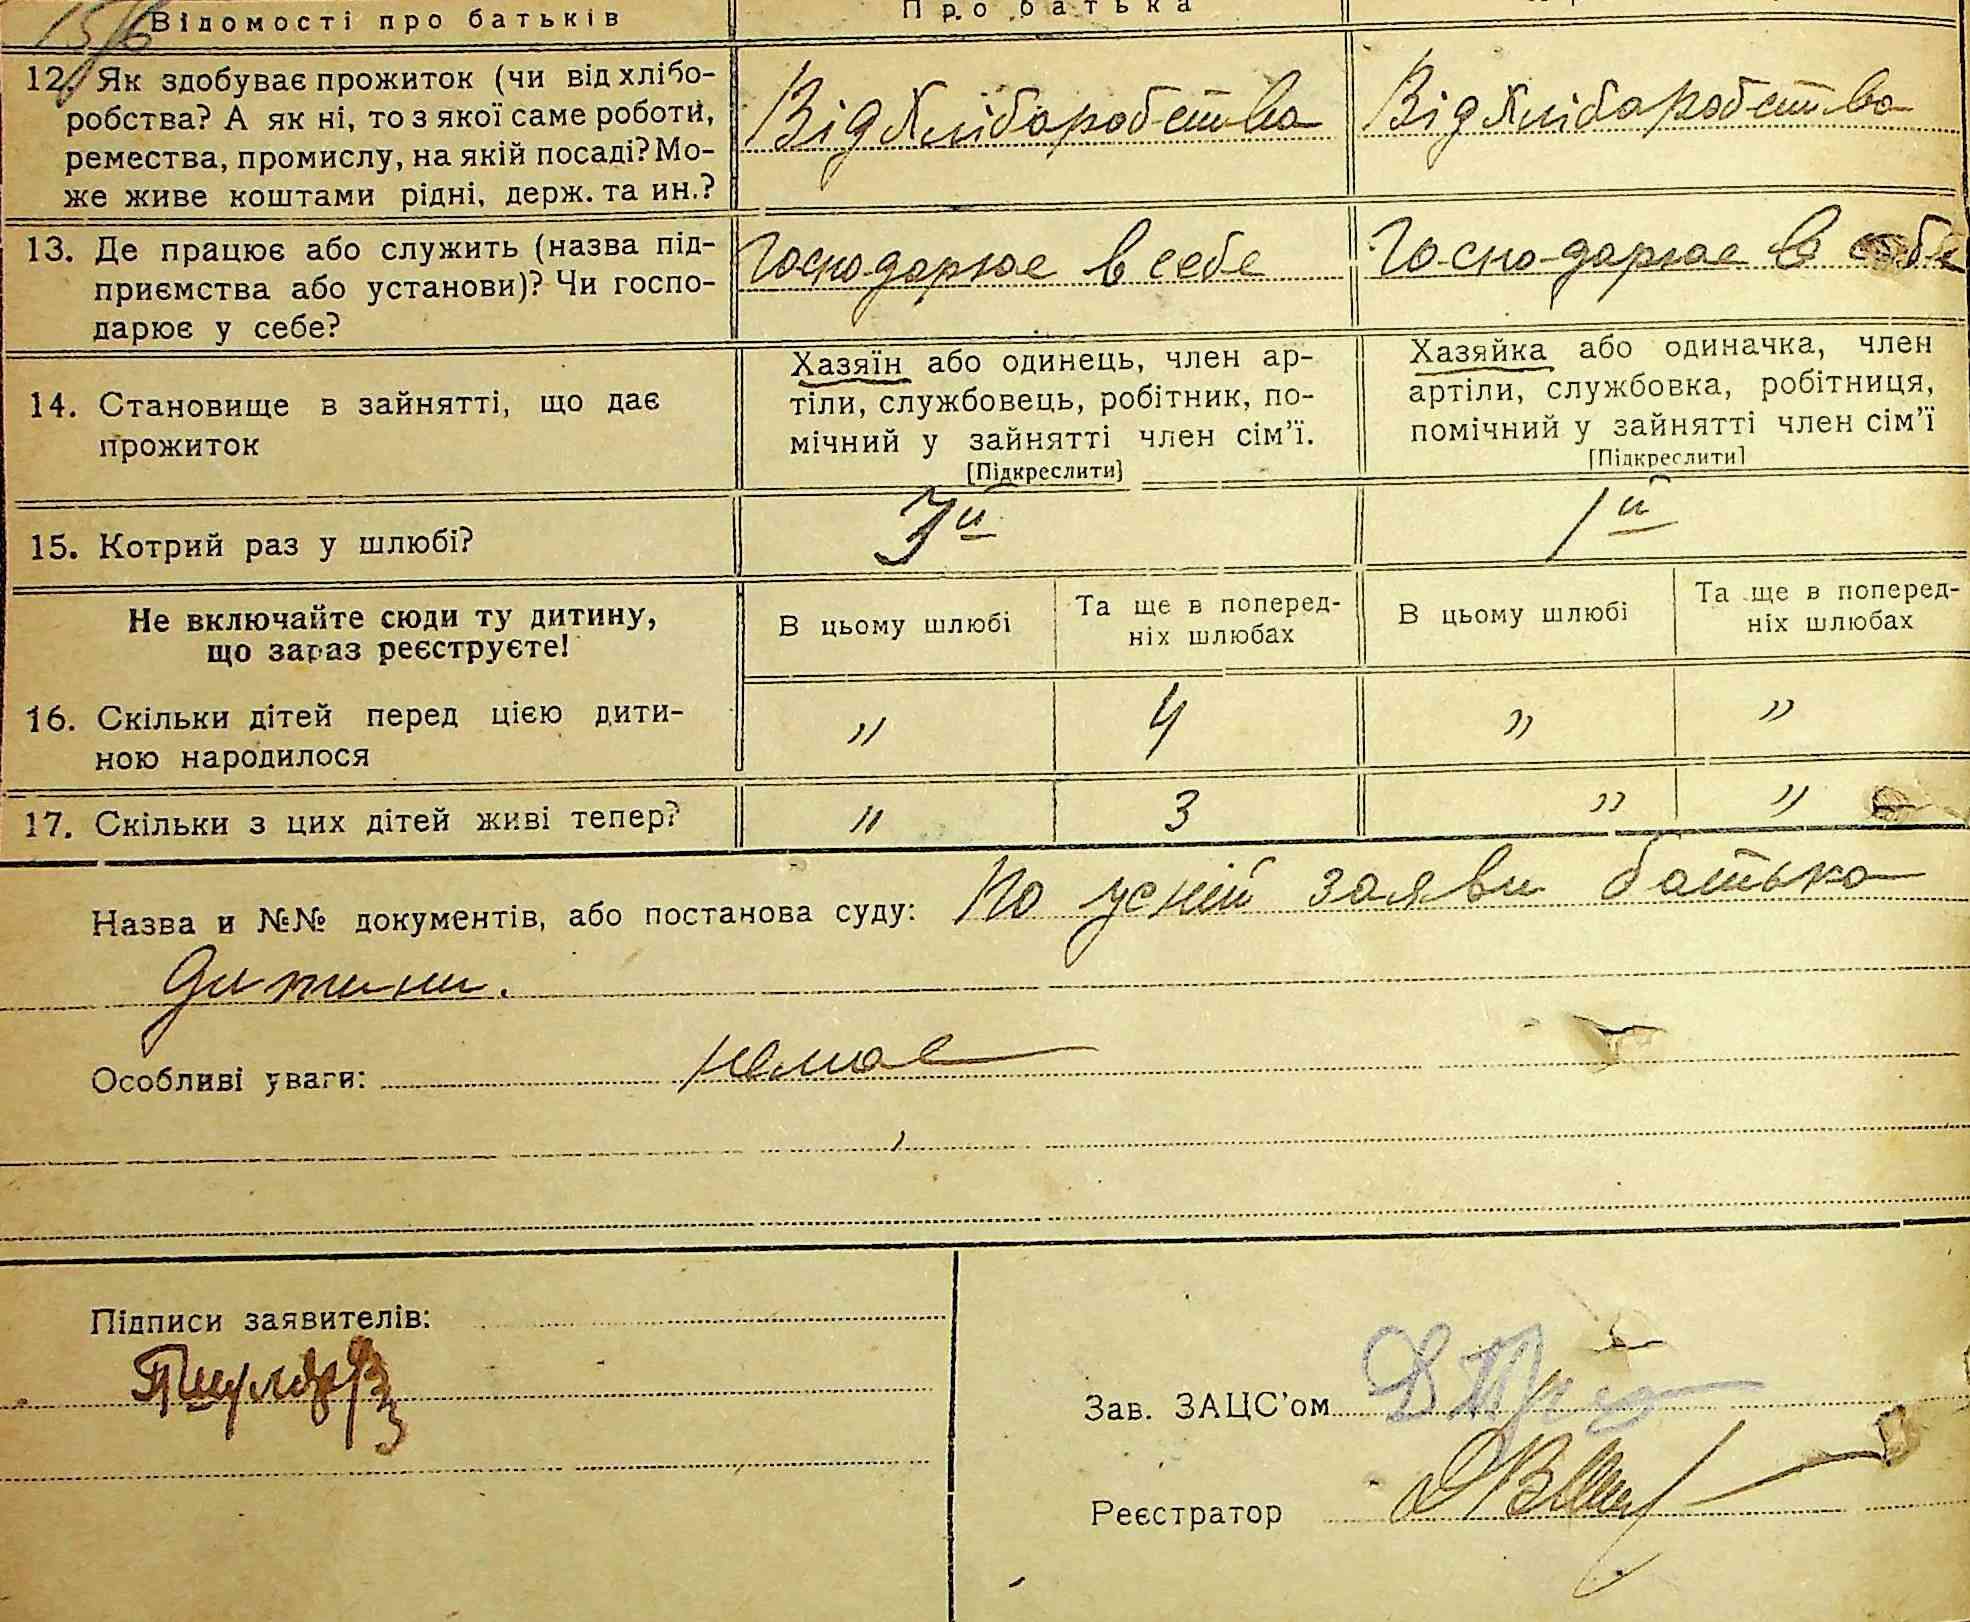 15/6
Відомості про батьків
Про батька
12. Як здобуває прожиток (чи від хлібо-
робства? А як ні, то з якої саме роботи,
ремества, промислу, на якій посаді? Мо-
же живе коштами рідні, держ. та ин.?
Від Хліборобства
Від Хліборобства
13. Де працює або служить (назва під-
приємства або установи)? Чи госпо-
дарює у себе?
Господарює в себе
Господарює в себе
14. Становище в зайнятті, що дає
прожиток
Хазяїн або одинець, член ар-
тіли, службовець, робітник, по-
мічний у зайнятті член сім’ї.
[Підкреслити]
Хазяйка або одиначка, член
артіли, службовка, робітниця,
помічний у зайнятті член сім’ї
[Підкреслити]
15. Котрий раз у шлюбі?
3й
1й
Не включайте сюди ту дитину,
що зараз реєструєте!
В цьому шлюбі
Та ще в поперед-
ніх шлюбах
В цьому шлюбі
Та ще в поперед-
ніх шлюбах
16. Скільки дітей перед цією дити-
ною народилося
„ 4 „ „
17. Скільки з цих дітей живі тепер?
„ 3 „ „
Назва и №№ документів, або постанова суду: По усній заяви батька
дитини.
Особливі уваги: немає
Підписи заявителів:
Зав. ЗАЦС’ом
Реєстратор